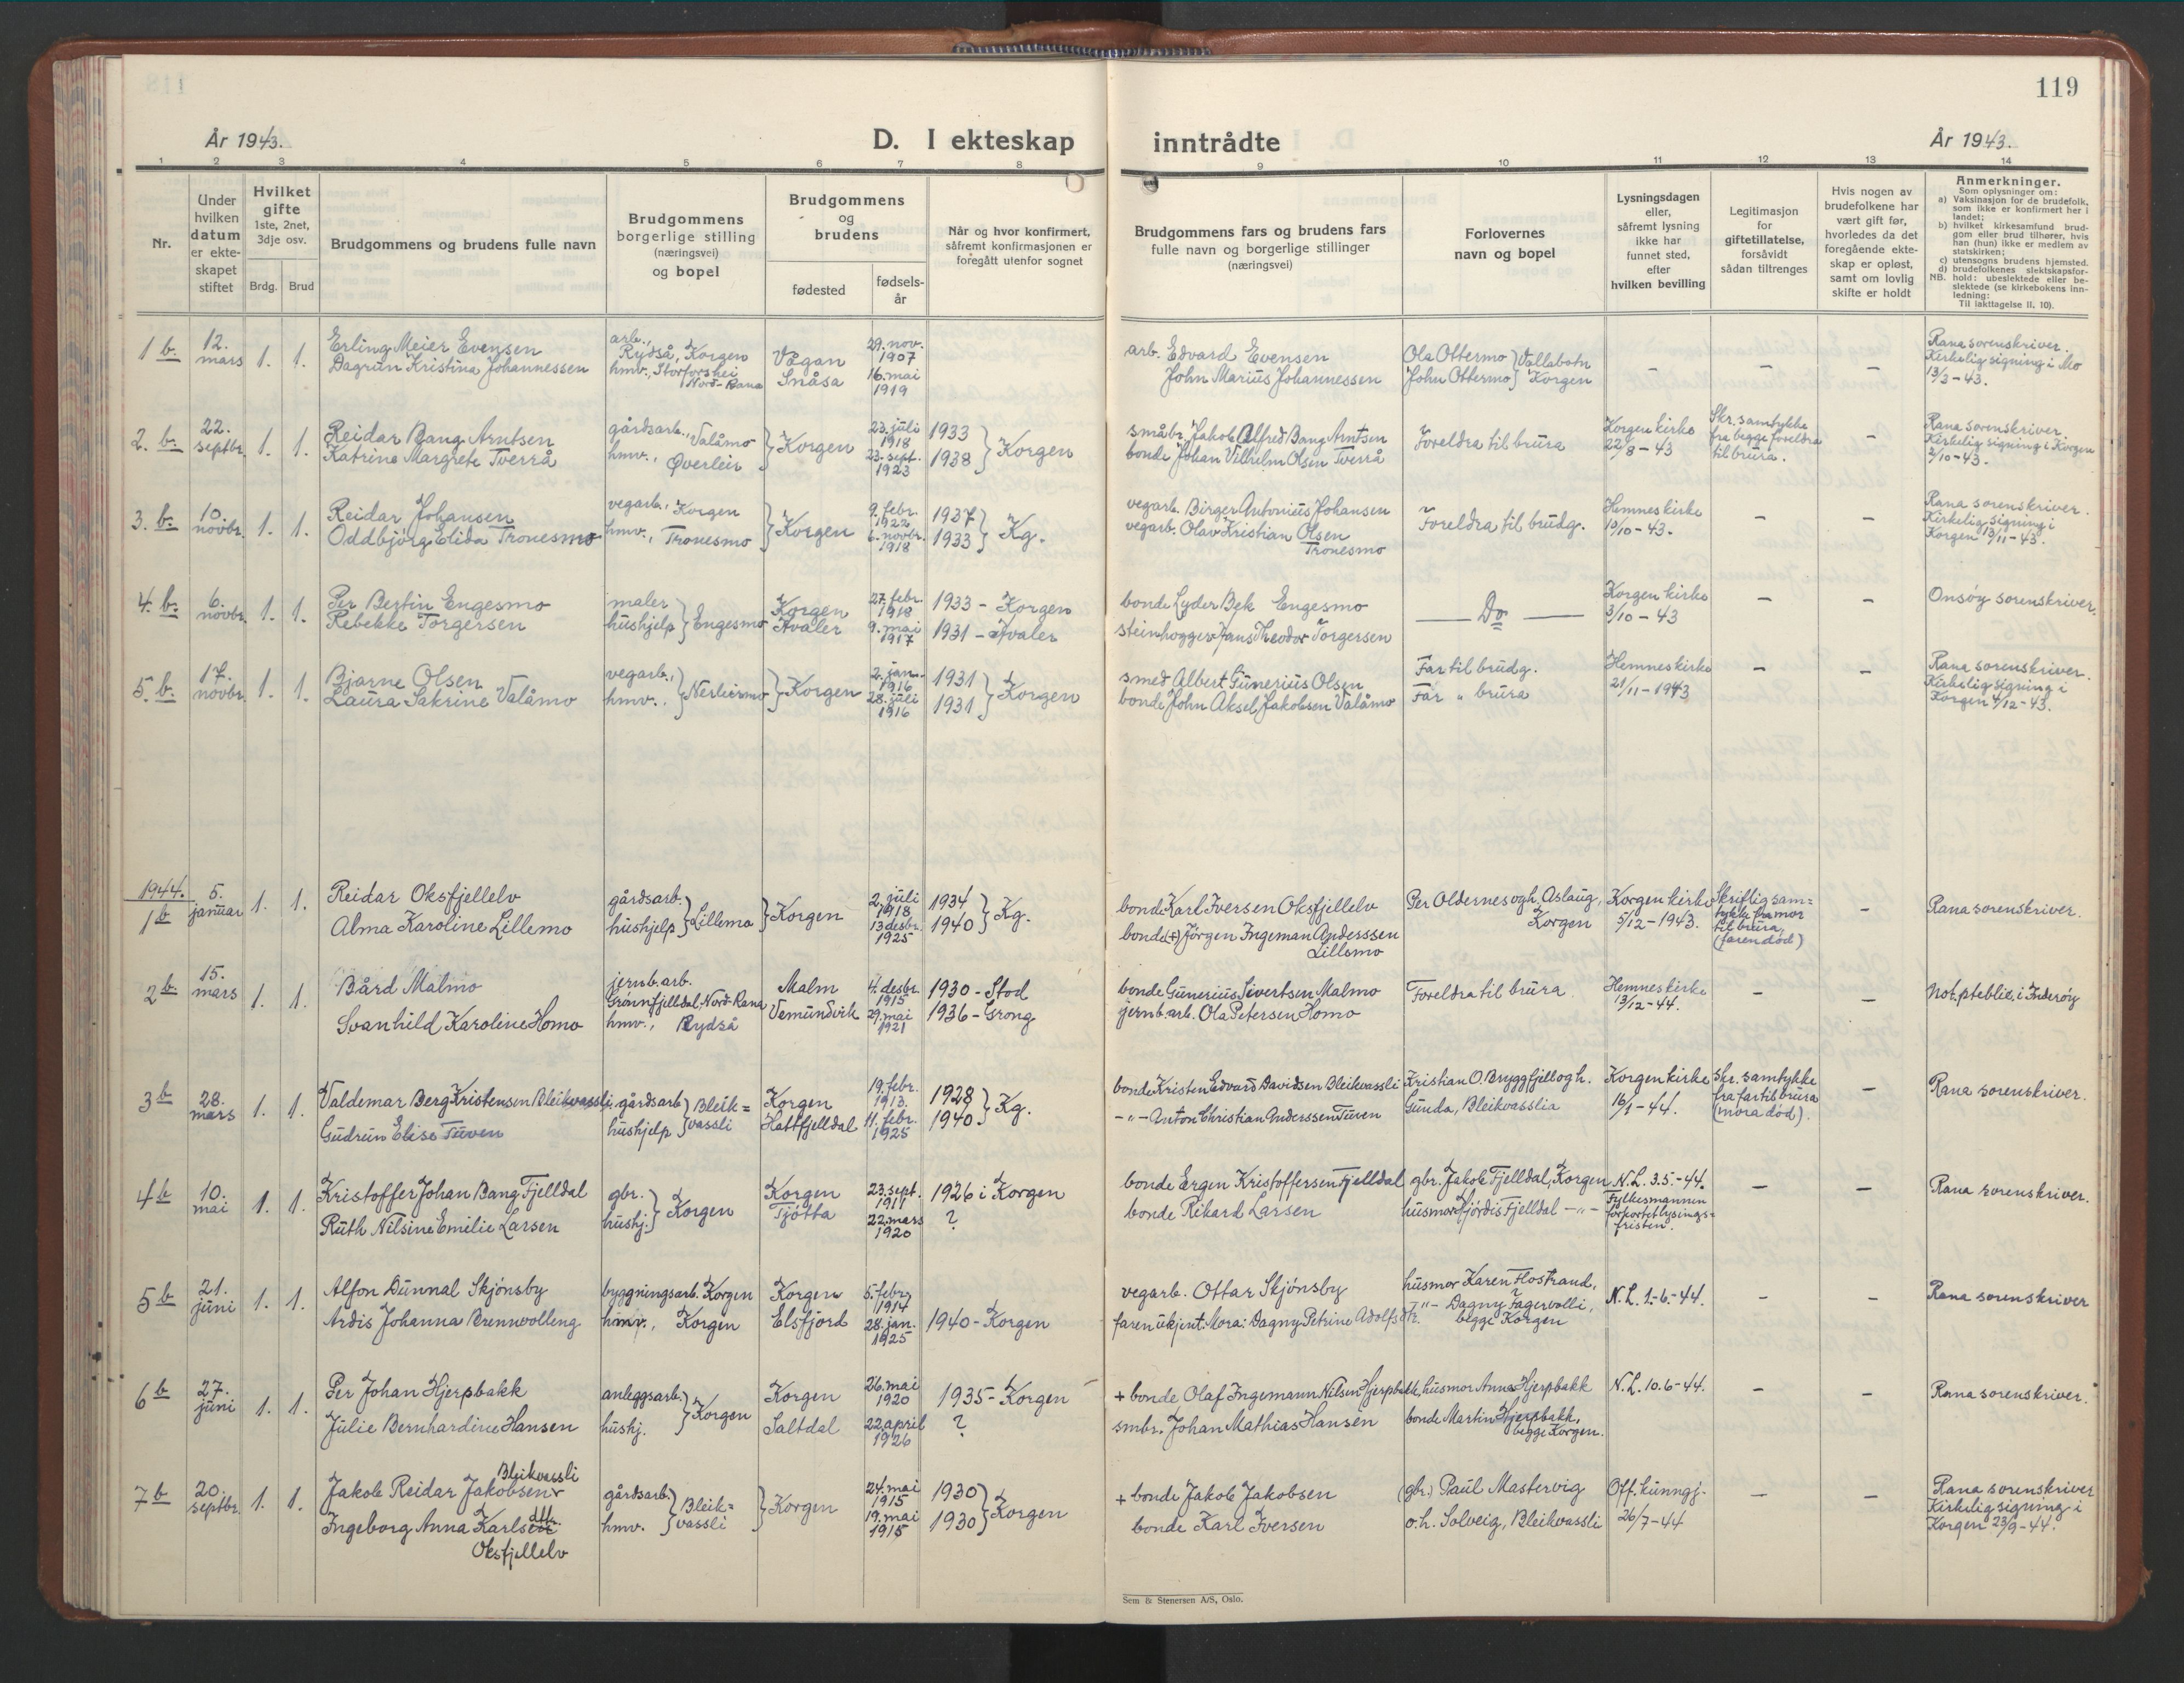 119
År 1943.
D. I ekteskap inntrådte
År 1943.
1 2 3 4 5 6 7 8 9 10 11 12 13 14
Nr.
Under hvilken datum er ekteskapet stiftet
Hvilket gifte 1ste, 2net, 3dje osv.
Brdg. Brud
Brudgommens og brudens fulle navn
Brudgommens borgerlige stilling (næringsvei) og bopel
Brudgommens og brudens
fødested
fødselsår
Når og hvor konfirmert, såfremt konfirmasjonen er foregått utenfor sognet
Brudgommens fars og brudens fars fulle navn og borgerlige stillinger (næringsvei)
Forlovernes navn og bopel
Lysningsdagen eller, såfremt lysning ikke har funnet sted, efter hvilken bevilling
Legitimasjon for giftetillatelse, forsåvidt sådan tiltrenges
Hvis nogen av brudefolkene har vært gift før, hvorledes da det foregående ekteskap er opløst, samt om lovlig skifte er holdt
Anmerkninger.
Som oplysninger om:
a) Vaksinasjon for de brudefolk, som ikke er konfirmert her i landet;
b) hvilket kirkesamfund brudgom eller brud tilhører, hvis han (hun) ikke er medlem av statskirken;
c) utensogns brudens hjemsted.
d) brudefolkenes slektskapsforhold: ubeslektede eller beslektede (se kirkebokens innledning:
NB. Til iakttagelse II, 10).
1 b. 12. mars 1. 1.
Erling Meier Evensen
Dagrun Kristina Johannessen
arb., Rydså, Korgen
hmv., Storforshei Nord-Rana
Vågan
Snåsa
29. nov. 1907
16. mai 1919
arb. Edvard Evensen
John Marius Johannessen
Ola Ottermo
John Ottermo } Vallabotn Korgen
– – –
Rana sorenskriver.
Kirkelig signing i Mo
13/3-43.
2. b. 22. septbr. 1. 1.
Reidar Bang Arntsen
Katrine Margrete Tverrå
gårdsarb., Valåmo
hmv., Øverleir
} Korgen
23. juli 1918
23. sept. 1923
1933
1938 } Korgen
småbr. Jakob Alfred Bang Arntsen
bonde Johan Vilhelm Olsen Tverrå
Foreldra til brura
Korgen kirke
22/8-43
Skr. samtykke fra begge foreldra til brura.
–
Rana sorenskriver
Kirkelig signing i Korgen
2/10-43.
3. b. 10. novbr. 1. 1.
Reidar Johansen
Oddbjörg Elida Tronesmo
vegarb., Korgen
hmv., Tronesmo
} Korgen
9. febr. 1922
6. novbr. 1918
1937
1933 } Kg.
vegarb. Birger Antonius Johansen
vegarb. Olav Kristian Olsen Tronesmo
Foreldra til brudg.
Hemnes kirke
10/10-43.
– –
Rana sorenskriver.
Kirkelig signing i
Korgen 13/11-43.
4. b. 6. novbr. 1. 1.
Per Bertin Engesmo
Rebekke Torgersen
maler
hushjelp } Engesmo
Korgen
Hvaler
27. febr. 1918
9. mai 1917
1933 - Korgen
1931 - Hvaler
bonde Lyder Bek Engesmo
steinhogger Hans Theodor Torgersen
— Do —
Korgen kirke
3/10-43
– –
Onsøy sorenskriver.
5. b. 17. novbr. 1. 1.
Bjarne Olsen
Laura Sakrine Valåmo
vegarb.,
hmv.. } Nerleirmo
} Korgen
2. jan. 1916
28. juli 1916
1931
1931 } Korgen
smed Albert Gunerius Olsen
bonde John Aksel Jakobsen Valåmo
Far til brudg.
Far " brura
Hemnes kirke
21/11-1943
– –
Rana sorenskriver.
Kirkelig signing i
Korgen 4/12-43.
1944.
1 b 5. januar 1. 1.
Reidar Oksfjellelv
Alma Karoline Lillemo
gårdsarb.
hushjelp } Lillemo
} Korgen
2. juli 1918
13 desbr. 1925
1934
1940 } Kg.
bonde Karl Iversen Oksfjellelv
bonde (+) Jörgen Ingeman Anderssen Lillemo
Per Oldernes og h. Aslaug, Korgen
Korgen kirke
5/12-1943.
Skriftlig samtykke fra mor til brura, (faren död)
–
Rana sorenskriver.
2 b 15. mars 1. 1.
Bård Malmo
Svanhild Karoline Homo
jernb.arb. Grønnfjelldal, Nord-Rana
hmv., Rydså
Malm
Vemundvik
4. desbr. 1915
29. mai 1921
1930 - Stod
1936 - Grong
bonde Gunerius Sivertsen Malmo
jernb.arb. Ola Petersen Homo
Foreldra til brura
Hemnes kirke
13/12-44.
– –
Not. pteblic. i Inderöy
3 b 28. mars 1. 1.
Valdemar Berg Kristensen Bleikvassli
Gudrun Elise Tuven
gårdsarb
hushjelp } Bleikvassli
Korgen
Hattfjelldal
19. febr. 1913.
11. febr. 1925
1928
1940 } Kg.
bonde Kristen Edvard Davidsen Bleikvassli
-"- Anton Christian Anderssen Tuven
Kristian O. Bryggfjell og h. Gunda, Bleikvasslia
Korgen kirke
16/1-44.
Skr. samtykke fra far til brura (mora död).
–
Rana sorenskriver.
4 b 10. mai 1. 1.
Kristoffer Johan Bang Fjelldal
Ruth Nilsine Emilie Larsen
gbr.
hushj. } Korgen
Korgen
Tjötta
23. sept. 1911
22. mars 1920
1926 i Korgen
?
bonde Ergen Kristoffersen Fjelldal
bonde Rikard Larsen
gbr. Jakob Fjelldal, Korgen
husmor Hjördis Fjelldal -"-
N.L. 3.5.-44.
Fylkesmannen forkortet lysingsfristen.
– –
Rana sorenskriver.
5 b 21. juni 1. 1.
Alfon Dunnal Skjönsby
Ardis Johanna Brennvolleng
byggningsarb. Korgen
hmv., Korgen
Korgen
Elsfjord
5. febr. 1914
28. jan. 1925
1940 - Korgen
vegarb. Ottar Skjönsby
faren ukjent. Mora: Dagny Petrine Adolfsdtr.
husmor Karen Flostrand,
-"- Dagny Fagervolli,
begge Korgen
N.L. 1.-6.-44.
– –
Rana sorenskriver
6 b 27. juni 1. 1.
Per Johan Hjerpbakk
Julie Bernhardine Hansen
anleggsarb.
hushj. } Korgen
Korgen
Saltdal
26. mai 1920
22. april 1926
1935 - Korgen
?
+ bonde Olaf Ingemann Nilsen Hjerpbakk
smbr. Johan Mathias Hansen
husmor Anna Hjerpbakk
bonde Martin Hjerpbakk,
begge Korgen.
N.L. 10.6-44.
– –
Rana sorenskriver.
7 b 20. septbr. 1. 1.
Jakob Reidar Jakobsen Bleikvassli
Ingeborg Anna Karlsdtr. Oksfjellelv
gårdsarb.
hmv. } Bleikvassli
} Korgen
24. mai 1915
19. mai 1915
1930
1930 } Korgen
+ bonde Jakob Jakobsen
bonde Karl Iversen
(gbr.) Paul Mastervig
o.h. Solveig, Bleikvassli
Off. kunngj.
26/7-44
– –
Rana sorenskriver
Kirkelig signing i
Korgen 23/9-44.
Sem & Stenersen A/S, Oslo.